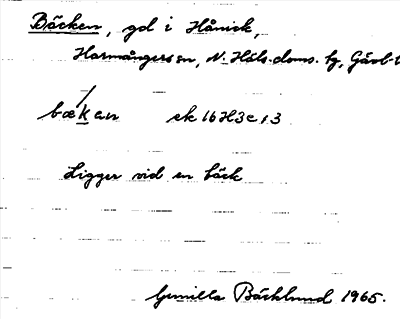 Bäcken, gd i Hånick,
Harmångers sn, N. Häls. doms. fg, Gävl-
bækan ek 16H3c,13
Ligger vid en bäck
Gunilla Bäcklund 1965.